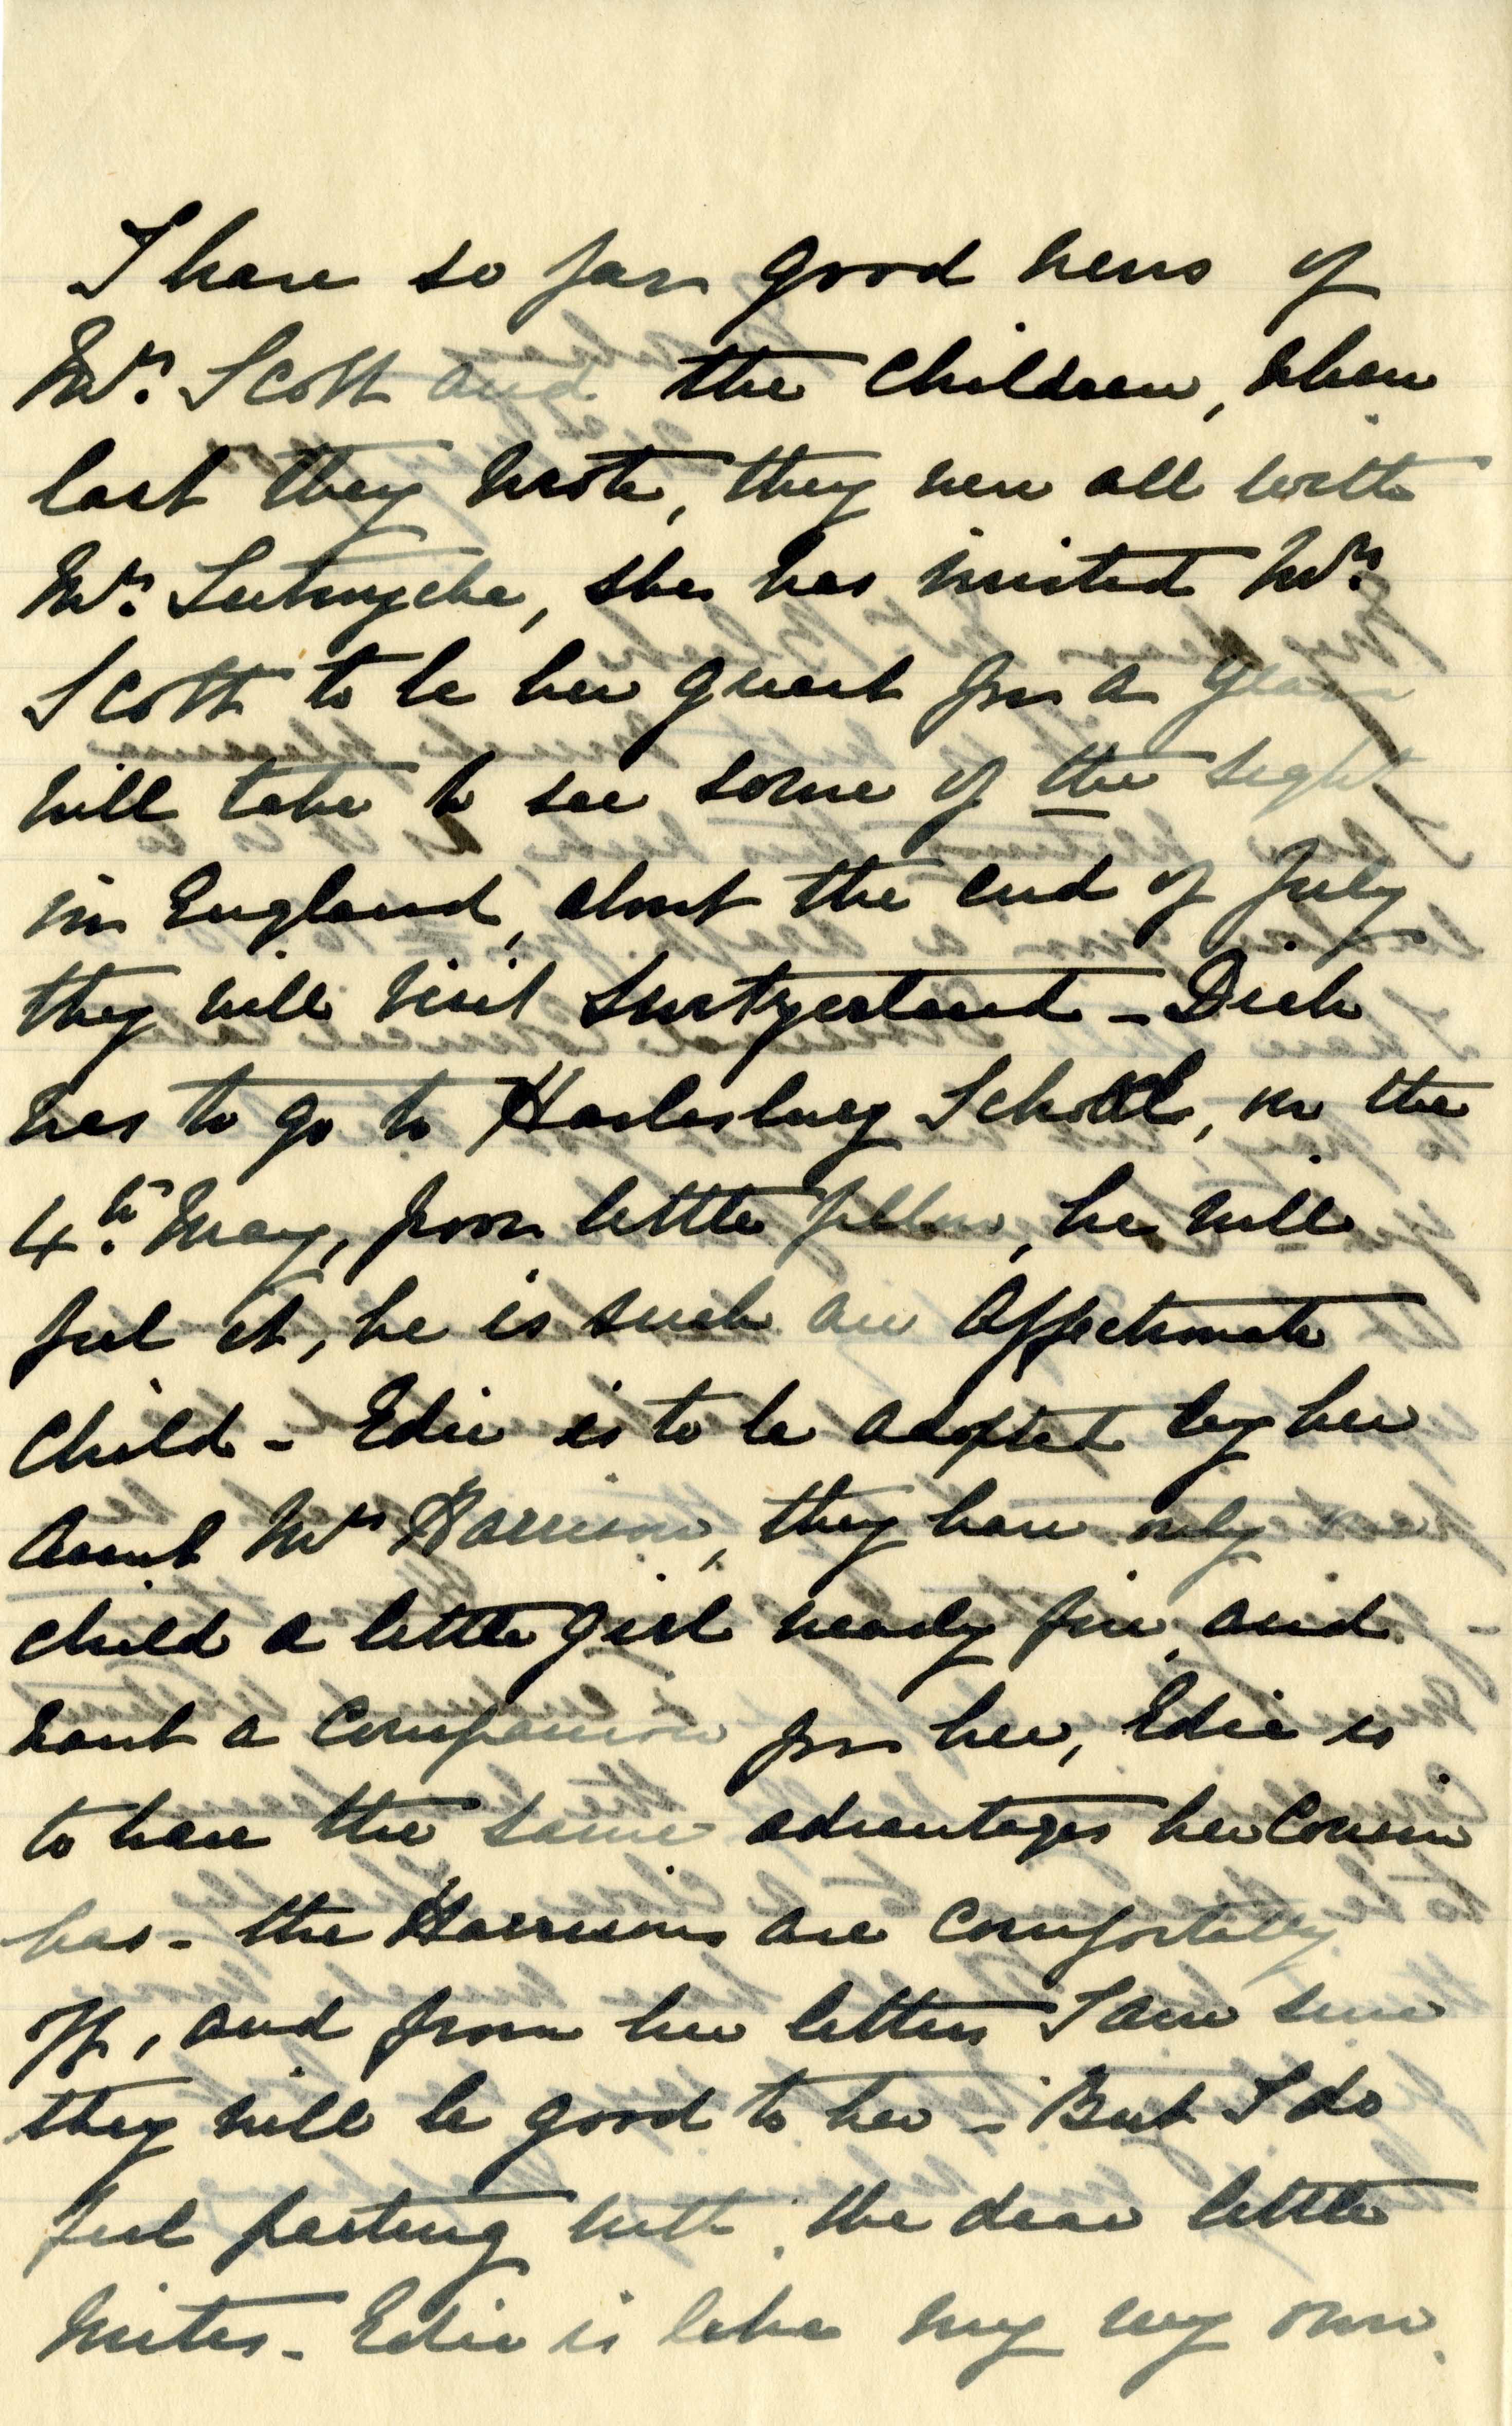 I have so far good news of
Mrs. Scott and the children, when
last they wrote, they were all with
Mrs. Lutwyche, she has invited Mrs.
Scott to be her guest for a year
will take to see some of the sights
in England, about the end of July
they will visit Switzerland - Dick
has to go to School, on the
4th. May, poor little fellow, he will
feel it, he is such an affectionate
child - Edie is to be adopted by her
Aunt Mrs Harrison, they have only one
child a little girl nearly five, and
want a companion for her, Edie is
to have the same advantages her Cousin
has - the Harrisons are comfortably
off, and from her letters I am sure
they will be good to her - But I do
feel parting with the dear little
mites - Edie is like my very own.